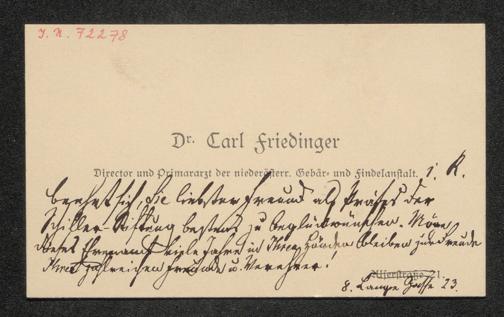 I. N. 72278
Dr. Carl Friedinger
Director und Primararzt der niederösterr. Gebär- und Findelanstalt. i. R.
beehrt sich, Sie liebster Freund als Präses der
Schiller-Stiftung bestens zu beglückwünschen. Möge
dieses Ehrenamt viele Jahre in Ihren Händen bleiben zur Freude
Ihrer zahlreichen Freunde u. Verehrer!
Alserstraße 21.
8. Lange Gasse 23.